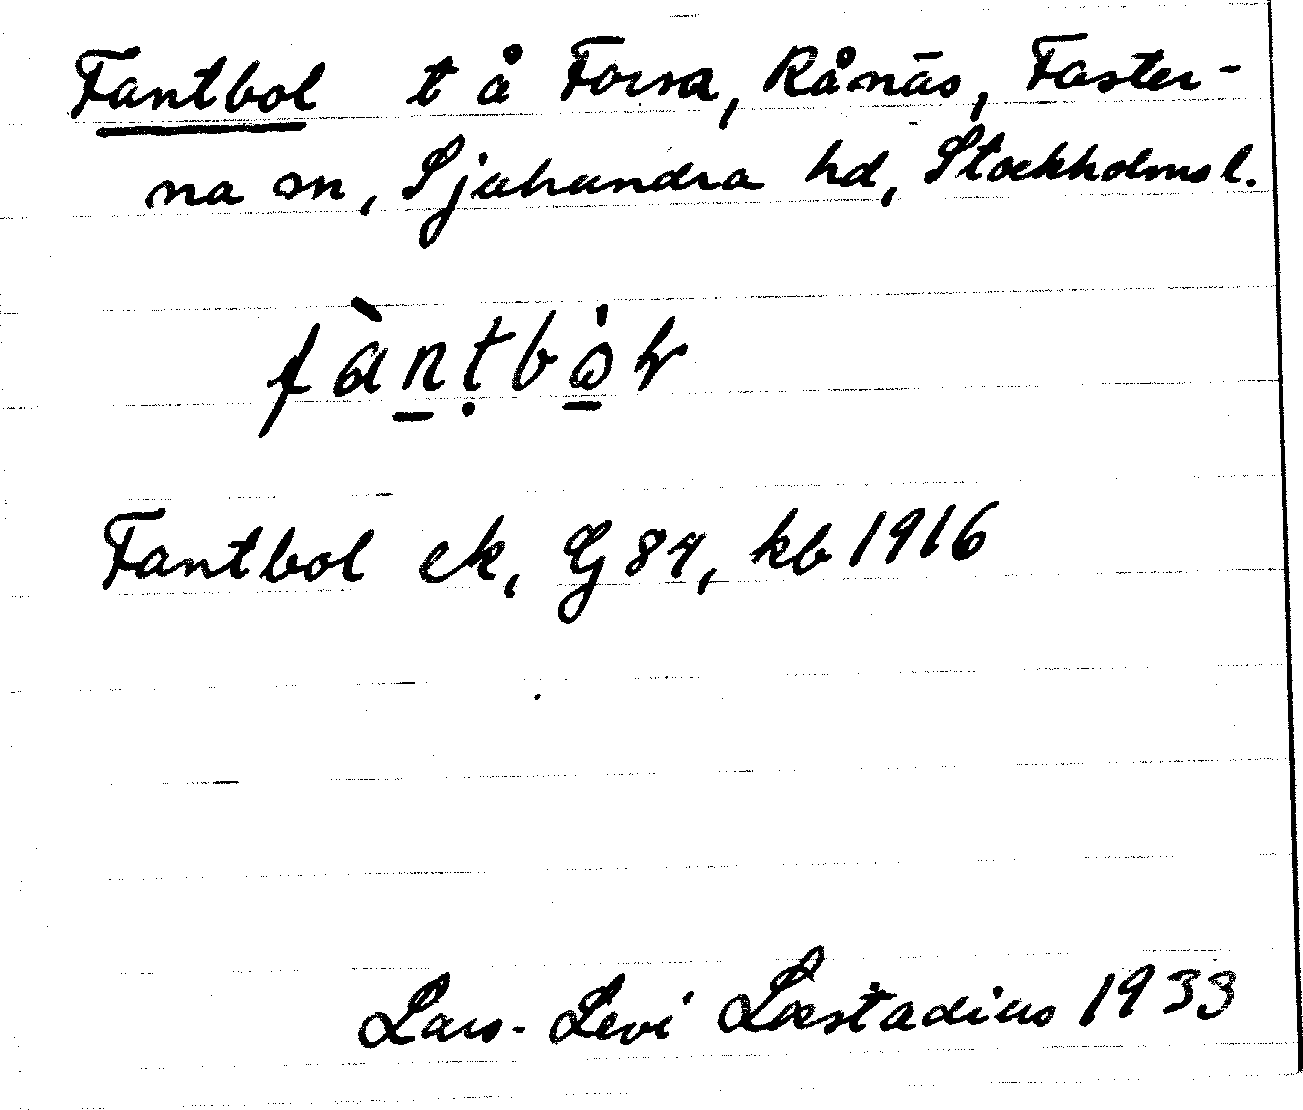 Fantbol t å Forsa, Rånäs, Faster-
na sn, Sjuhundra hd, Stockholms l.
fàntbòr
Fantbol ek, G 84, kb 1916
Lars-Levi Læstadius 1933